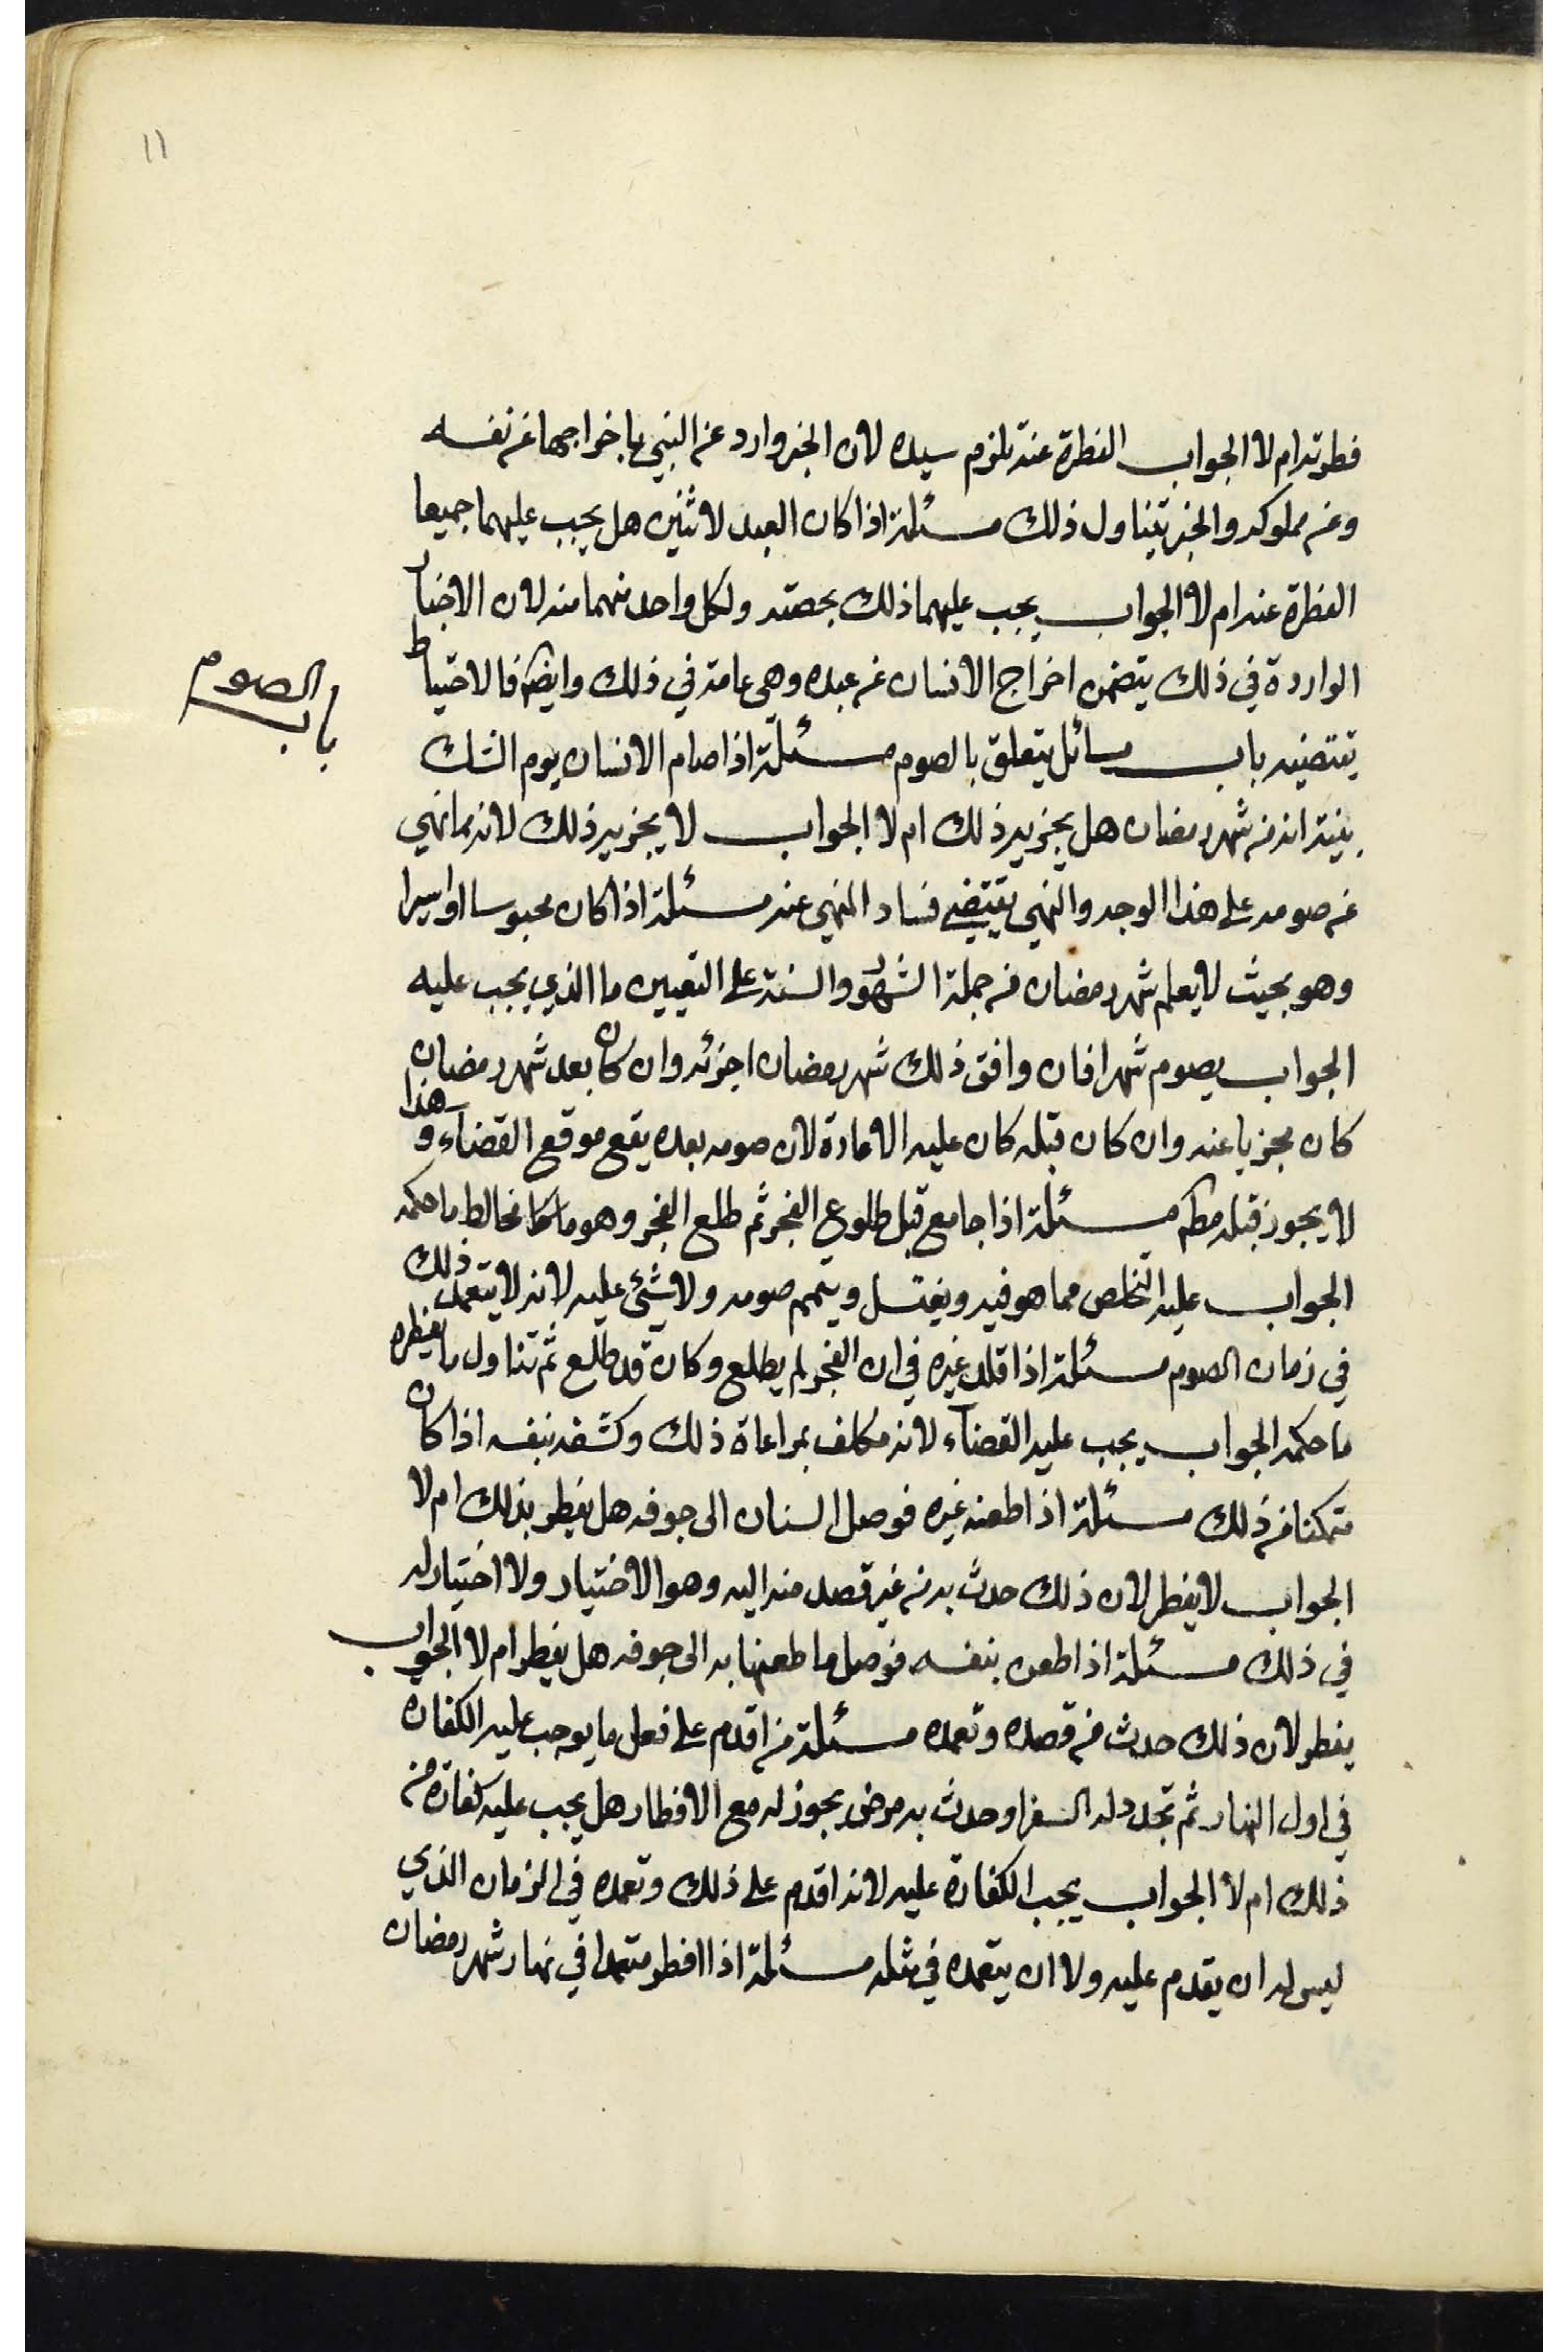 ١١
فطرته ام لا الجواب الفطرة عنه تلزم سيده لان الخبر وارد عن النبي باخراجها عن نفسه
وعن مملوكه والخبر يتناول ذلك مسئلة اذا كان العبد لاثنين هل يجب عليهما جميعا
الفطرة عنه ام لا الجواب يجب عليهما ذلك بحصته ولكل واحد منهما منه لان الاخبار
الواردة في ذلك يتضمن اخراج الانسان عن عبده وهي عامة في ذلك وايضا فالاحتياط
باب الصوم
يقتضيه باب مسائل يتعلق بالصوم مسئلة اذا صام الانسان يوم الشك
بنية انه من شهر رمضان هل يجزيه ذلك ام لا الجواب لا يجزيه ذلك لانه مما نهي
عن صومه على هذا الوجه والنهي يقتضي فساد المنهي عنه مسئلة اذا كان محبوسا او اسيرا
وهو بحيث لا يعلم شهر رمضان من جملة الشهور والسنة على التعيين ما الذي يجب عليه
الجواب يصوم شهرا فان وافق ذلك شهر رمضان اجزئه وان كان بعد شهر رمضان
كان مجزيا عنه وان كان قبله كان عليه الاعادة لان صومه بعده يقع موقع القضاء وهذا
لا يجوز قبله مسئلة اذا جامع قبل طلوع الفجر ثم طلع الفجر وهو مخالط ما حكمه
الجواب عليه التخلص مما هو فيه ويغتسل ويتمم صومه ولا شئ عليه لانه لا يتعمد ذلك
في زمان الصوم مسئلة اذا قلد غيره في ان الفجر لم يطلع وكان قد طلع ثم تناول ما يفطره
ما حكمه الجواب يجب عليه القضاء لانه مكلف بمراعاة ذلك وكشفه بنفسه اذا كان
متمكنا من ذلك مسئلة اذا طعنه غيره فوصل السنان الى جوفه هل يفطر بذلك ام لا
الجواب لا يفطر لان ذلك حدث به من غير قصد منه اليه وهو الاختيار ولا اختيار له
في ذلك مسئلة اذا طعن بنفسه فوصل ما طعنها به الى جوفه هل يفطر ام لا الجواب
يفطر لان ذلك حدث من قصده وتعمده مسئلة من اقدم على فعل ما يوجب عليه الكفارة
في اول النهار ثم تجدد له السفر او حدث به مرض يجوز له مع الافطار هل يجب عليه كفارة من
ذلك ام لا الجواب يجب الكفارة عليه لانه اقدم على ذلك وتعمده في الزمان الذي
ليس له ان يقدم عليه ولا ان يتعمده في مثله مسئلة اذا افطر متعمدا في نهار شهر رمضان